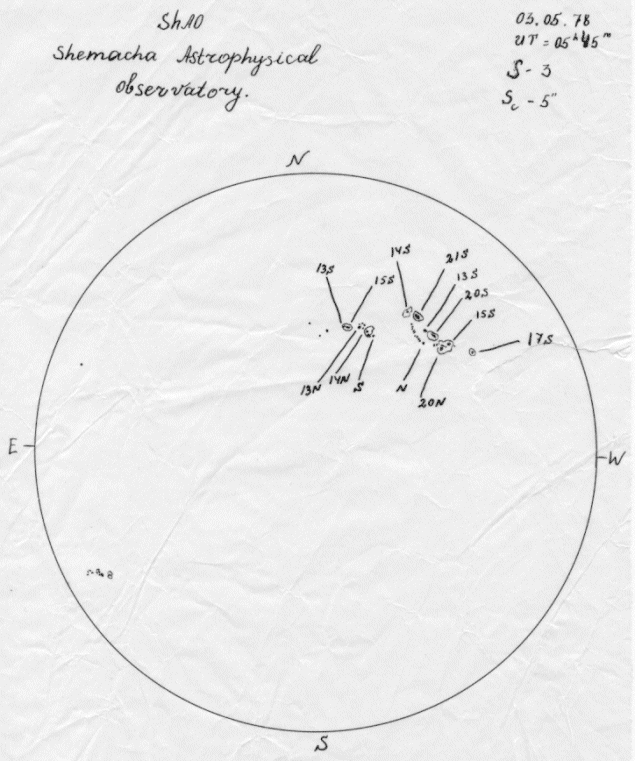 ShAO
Shemacha Astrophysical
Observatory.
03.05.78
UT = 05ʰ45ᵐ
S - 3
S꜀ - 5"
N
14S
21S
13S
13S
15S
20S
15S
17S
13N
14N
S
N
20N
E
W
S